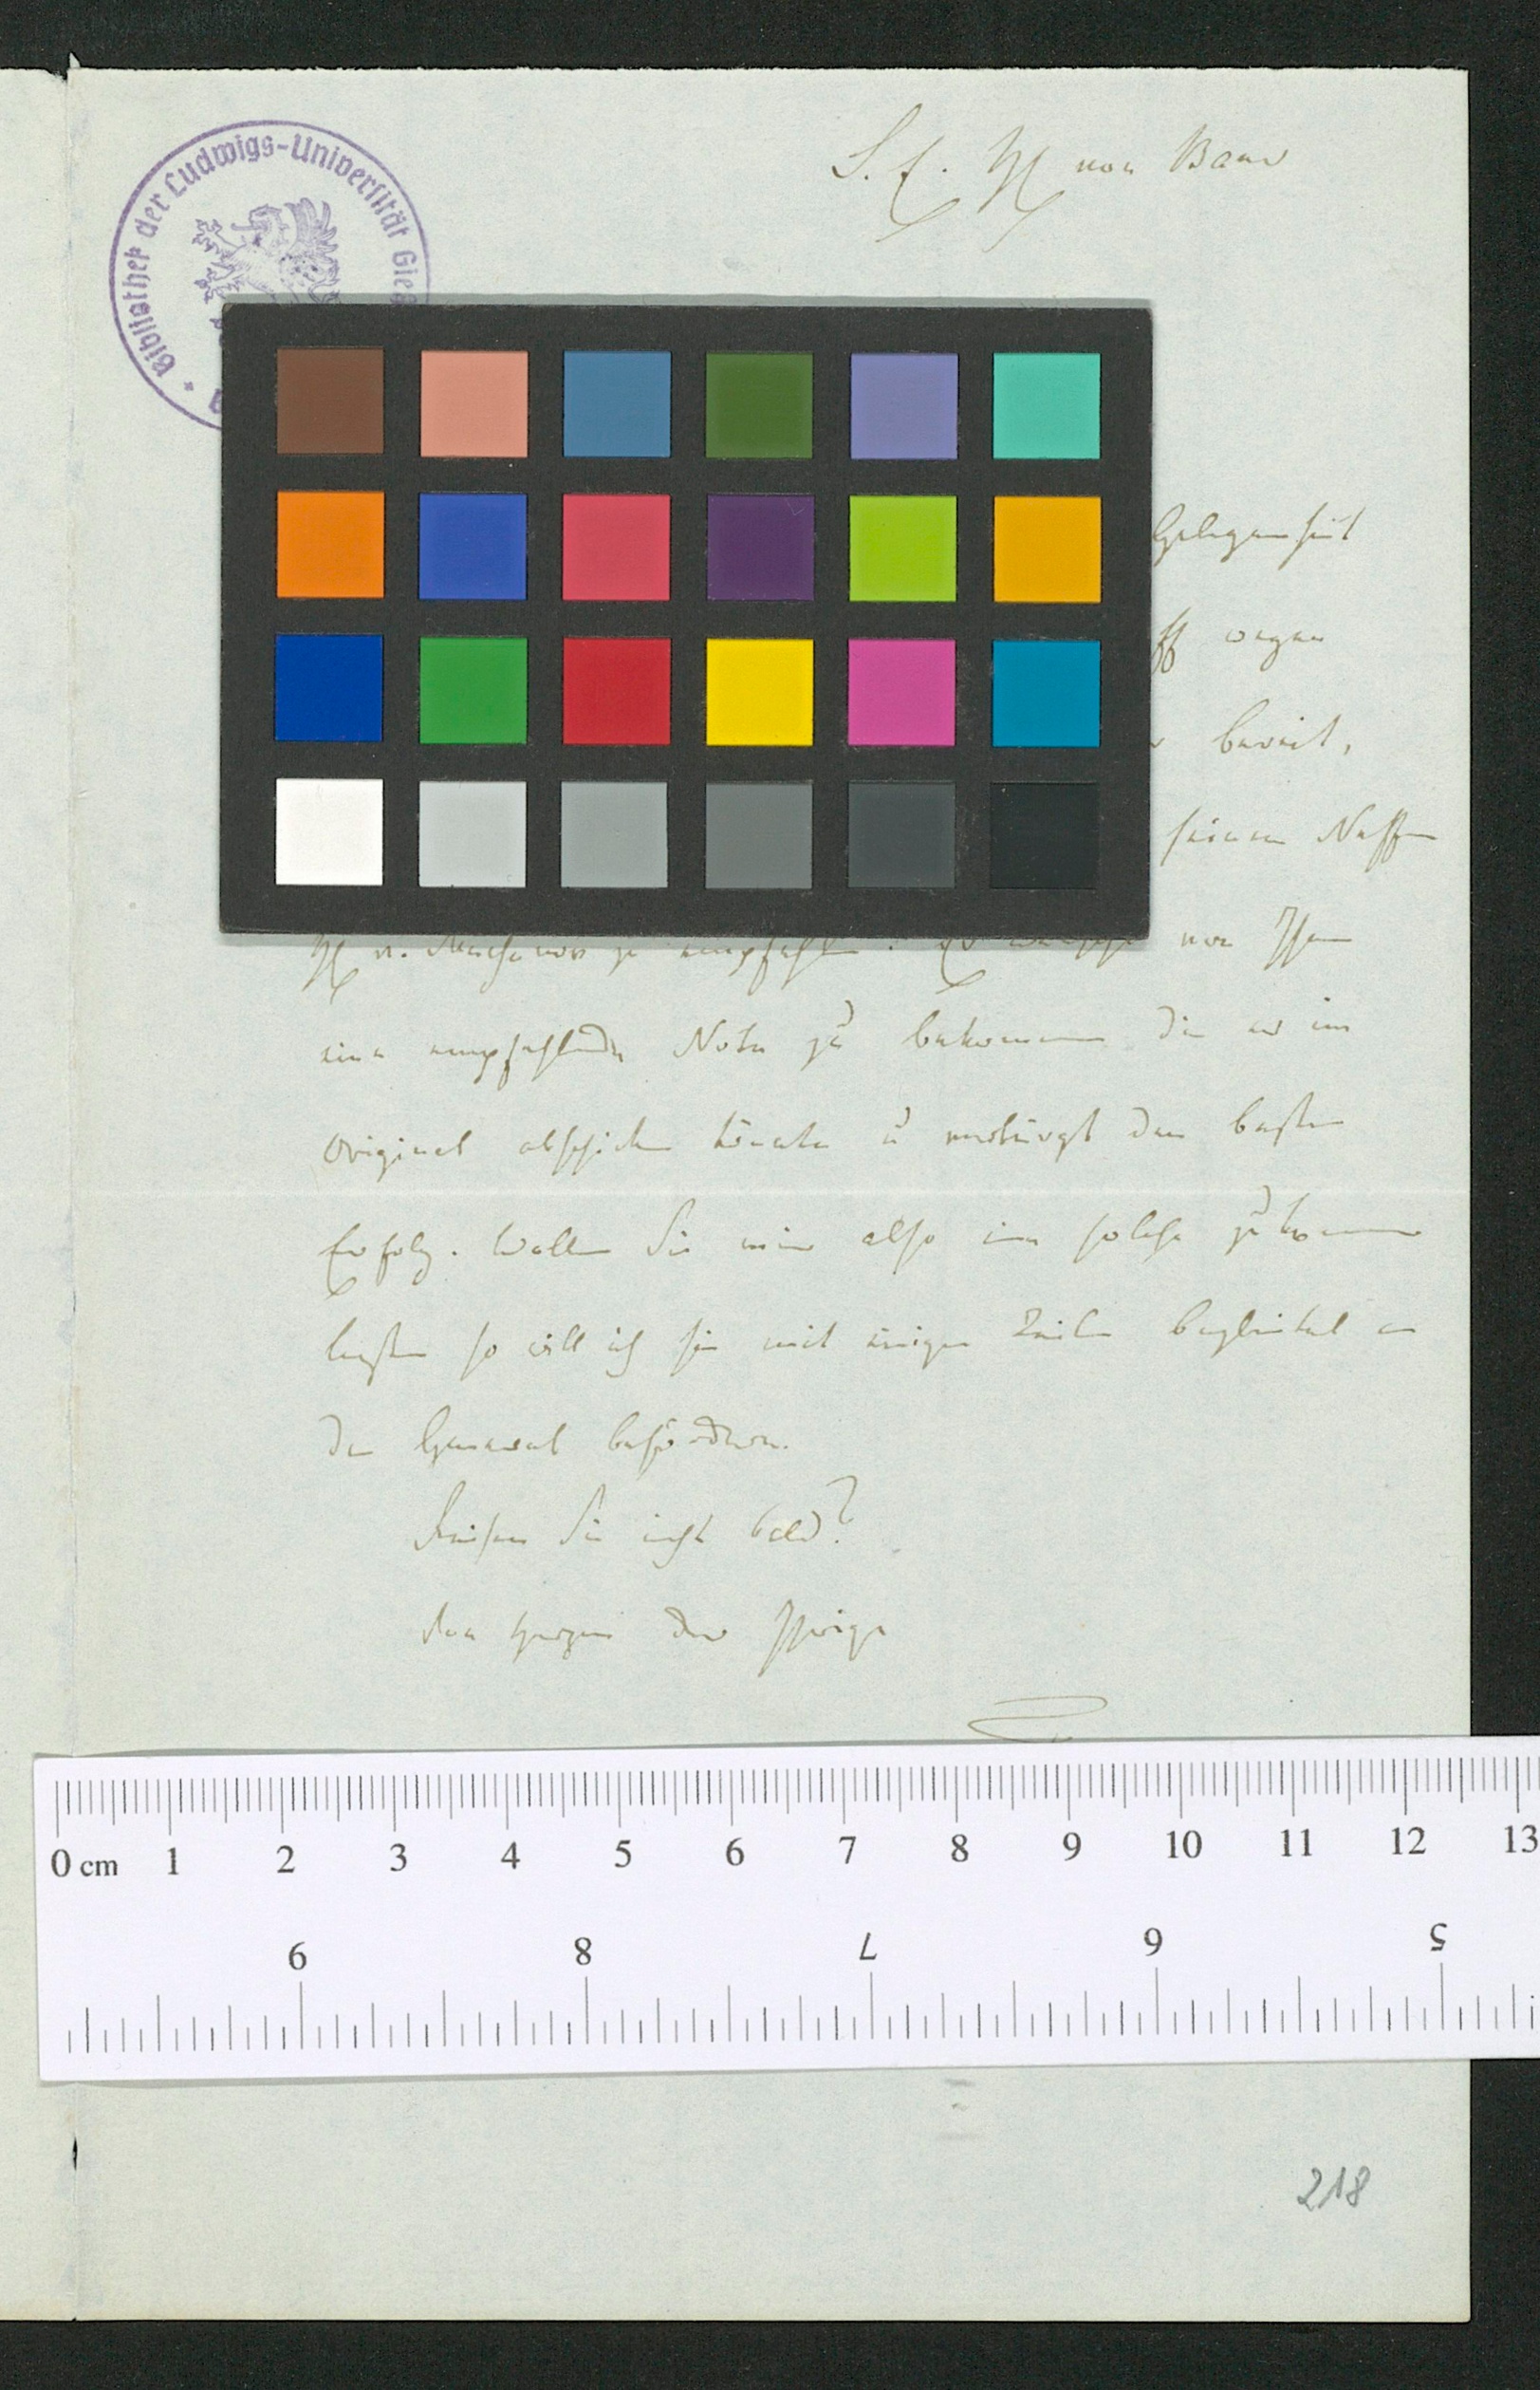 S. E. H von Baer
Bibliothek der Ludwigs-Universität Gieß
Gelegenheit
ff wegen
bereit,
seinen Neffen
H v. zu empfehlen. Er wünscht von Ihnen
eine empfehlende Note zu bekommen die er im
Original abschicken könnte u verbürgt den besten
Erfolg. Wollen Sie mir also eine solche zukommen
lassen so will ich sie mit einigen Zeilen begleitet an
den General befördern.
Reisen Sie nicht bald?
Von Herzen der Ihrige
0 cm 1 2 3 4 5 6 7 8 9 10 11 12 13
9 8 7 6 5
218